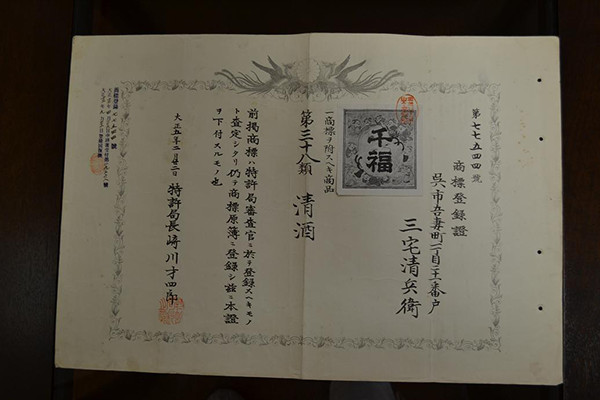 第七七五四四號
商標登錄證
呉市吾妻町
三宅清兵衛
千福
一商標ヲ附スヘキ商品
第三十八類 清酒
前掲商標ハ特許局審査官ニ於テ登録スヘキモノ
ト査定シタリ仍テ商標原簿ニ登録シ茲ニ本證
ヲ下付スルモノ也
大正五年二月廿二日
特許局長 崎川才四郎